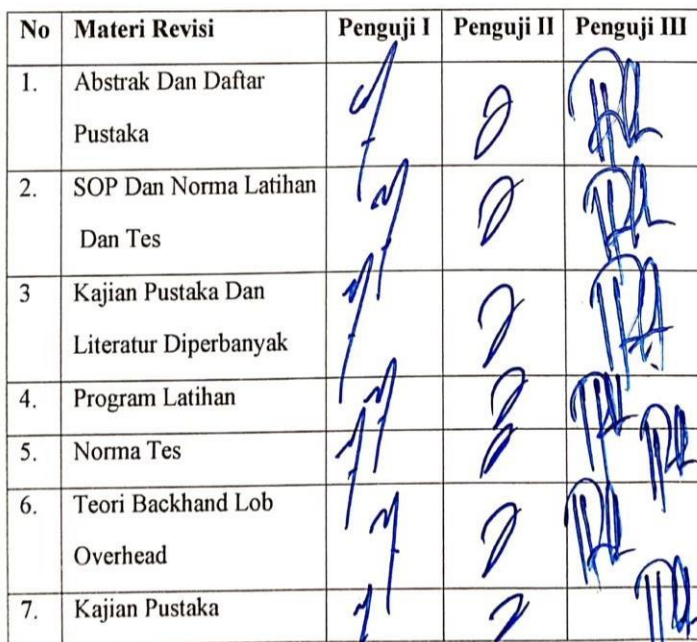 No Materi Revisi Penguji I Penguji II Penguji III
1. Abstrak Dan Daftar
Pustaka
2. SOP Dan Norma Latihan
Dan Tes
3 Kajian Pustaka Dan
Literatur Diperbanyak
4. Program Latihan
5. Norma Tes
6. Teori Backhand Lob
Overhead
7. Kajian Pustaka